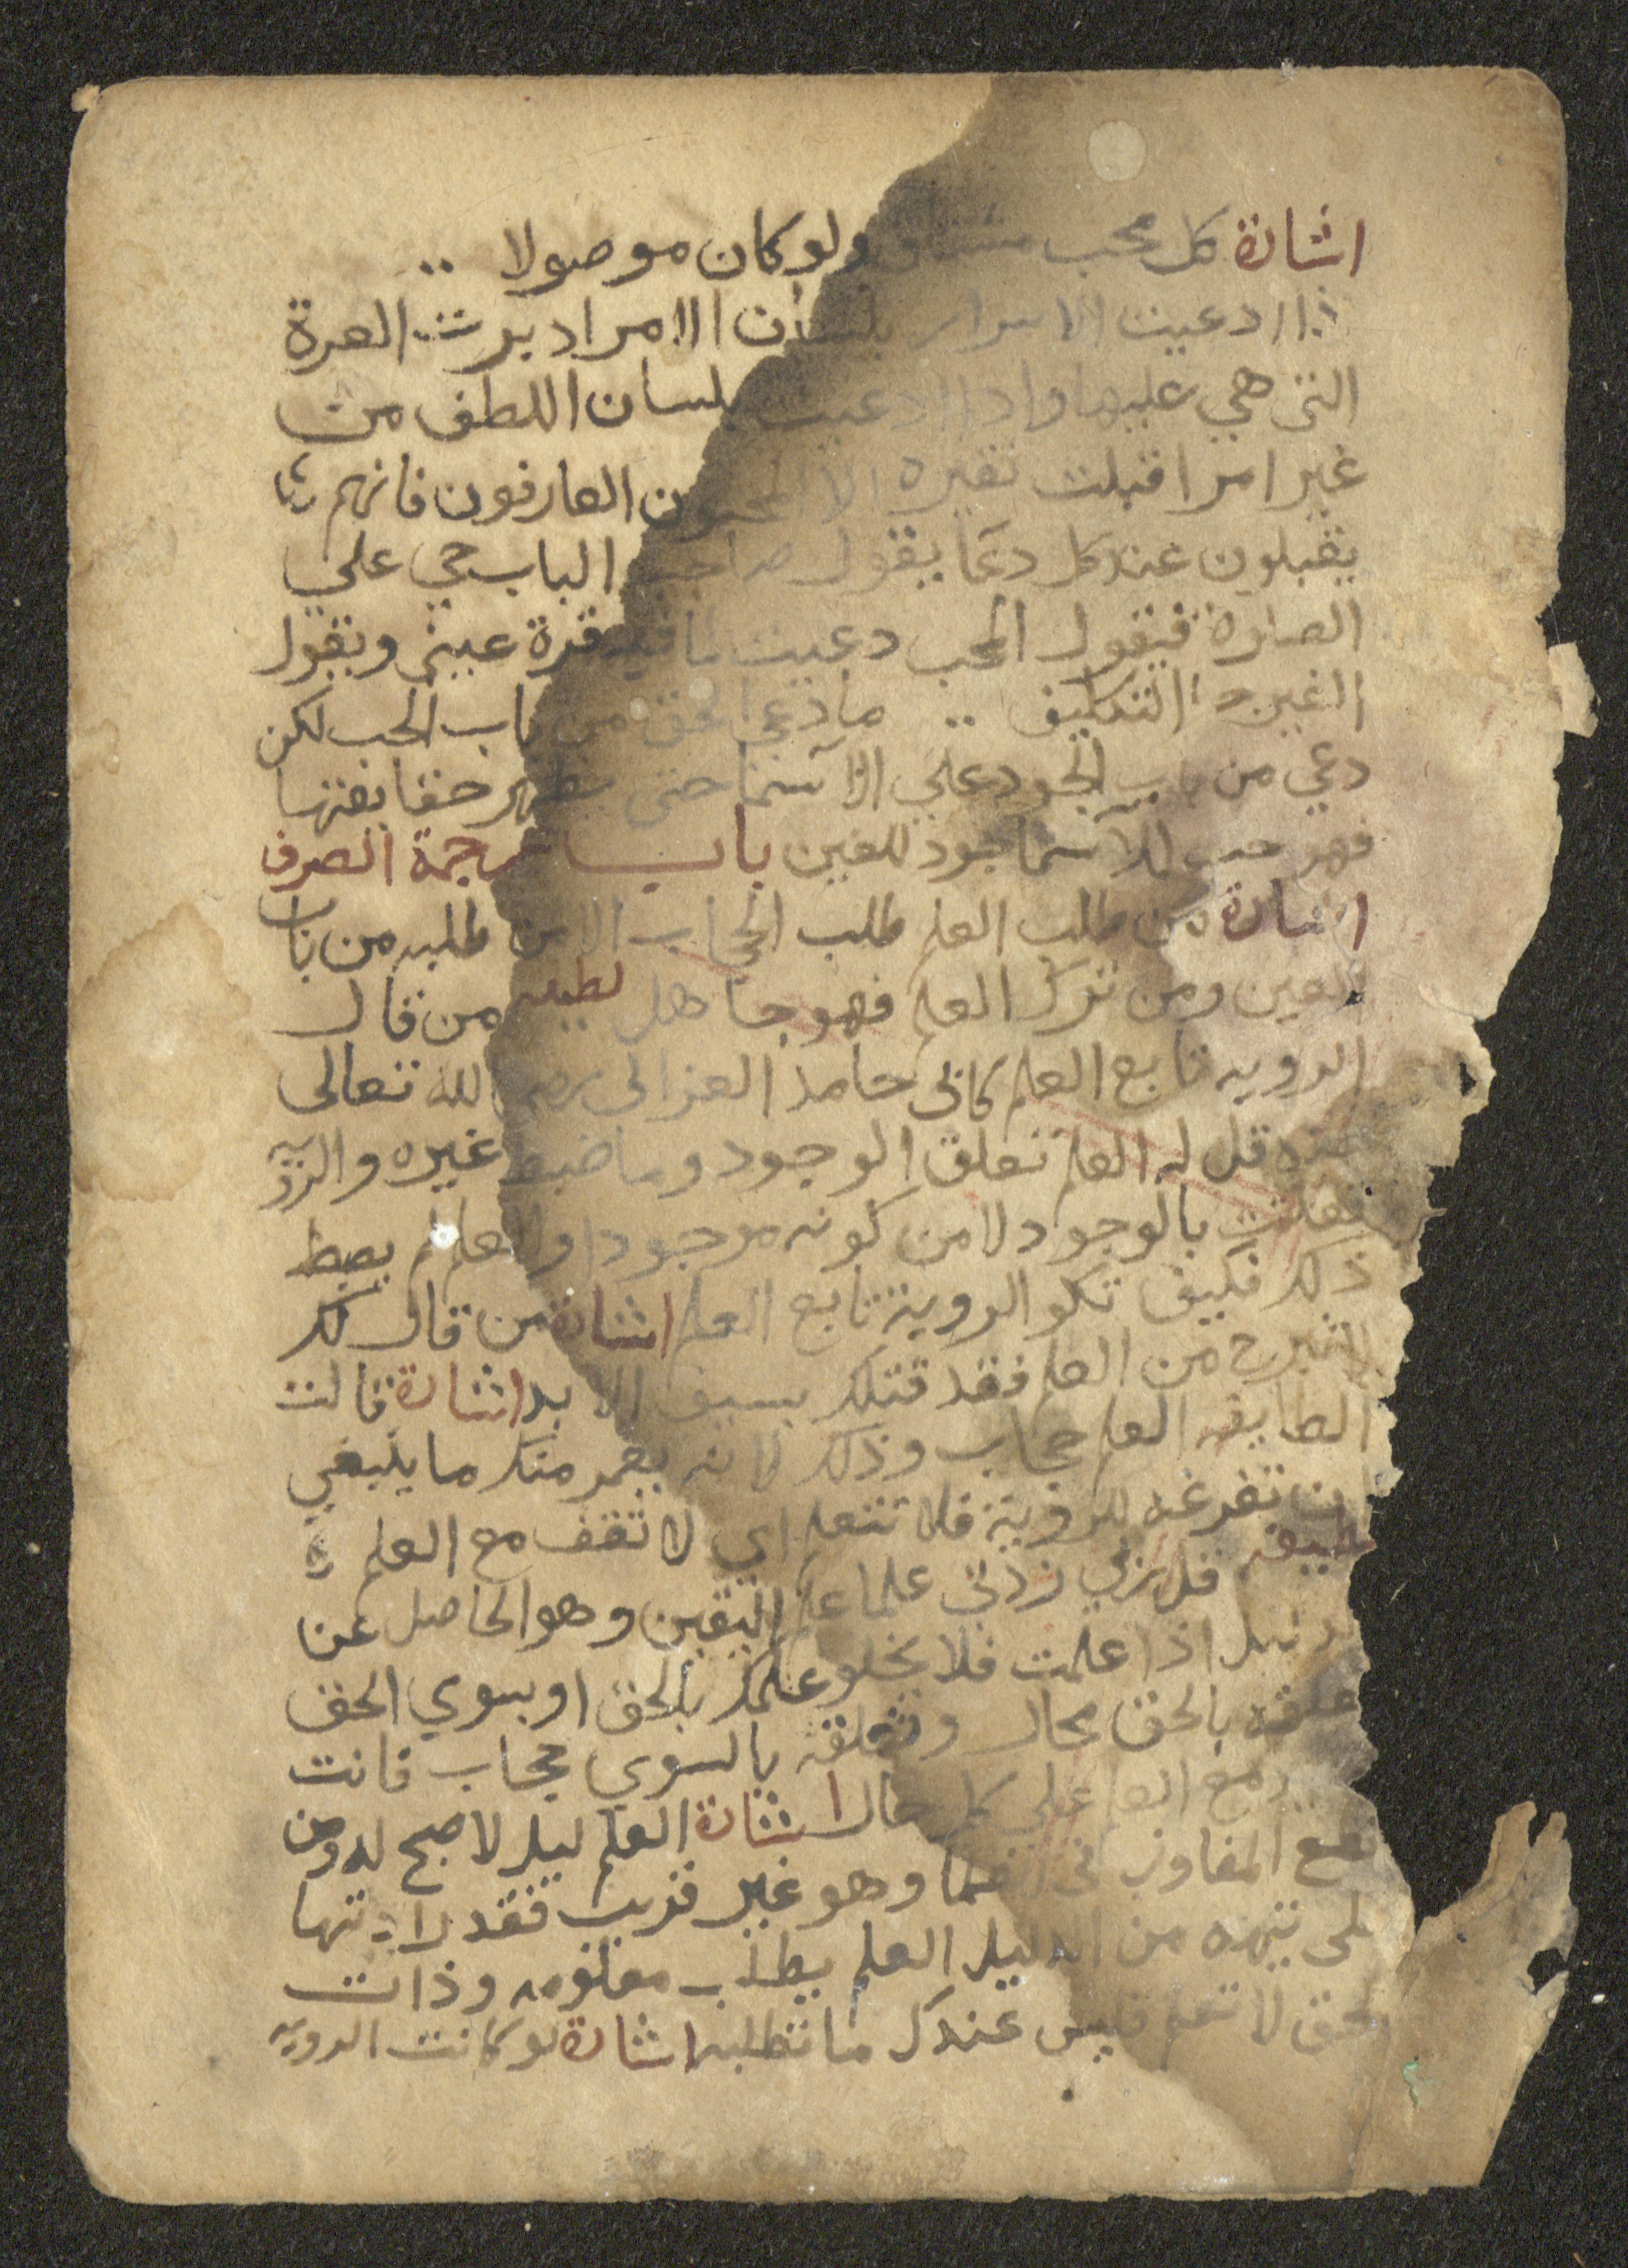 اشارة كل محب مشتاق ولو كان موصولا ..
اذا ادعيت الاسرار بلسان الامر ادبرت العرة
التى هي عليها واذا ادعيت بلسان اللطف من
غير امر اقبلت الا المحبون العارفون فانهم
يقبلون عند كل دعا يقول صاحب الباب حي علي
الصلاة فيقول المحب دعيت لما فيه قرة عيني ويقول
الغير التكليف .. ما دعي الحق من باب الحب لكن
دعي من باب الجود علي الاسما حتى يظهر حقايقها
فهو حب للاسما جود للعين باب ترجمة الصرف
اشارة من طلب العلم طلب الحجاب الا من طلبه من باب
العين ومن ترك العلم فهو جاهل لطيفه من قال
الرويه تابع العلم كابى حامد الغزالى رضى الله تعالى
عنه قل له العلم تعلق الوجود وما ضبط غيره والروية
تعلقت بالوجود لا من كونه موجودا والعلم يضبط
ذلك فكيف تكو الروية تابع العلم اشارة من قال لك
لا تبرح من العلم فقد قتلك بسيف الابد اشارة قالت
الطايفه العلم حجاب وذلك لانه يعمر منك ما ينبغي
ان تفرغه للروية فلا تتعلم اي لا تقف مع العلم
لطيفه قل رب زدني علما علم اليقين وهو الحاصل عن
دليل اذا علمت فلا يخلو علمك بالحق او بسوي الحق
علقه بالحق محال وتعلقه بالسوي حجاب فانت
مع العلم علي كل حال اشارة العلم ليل لا صبح له ومن
قطع المفاوز في وهو غير قريب فقد
تيهه من الدليل العلم يطلب معلومه وذات
الحق لا تعلم فليس عندك ما تطلبه اشارة لو كانت الرويه